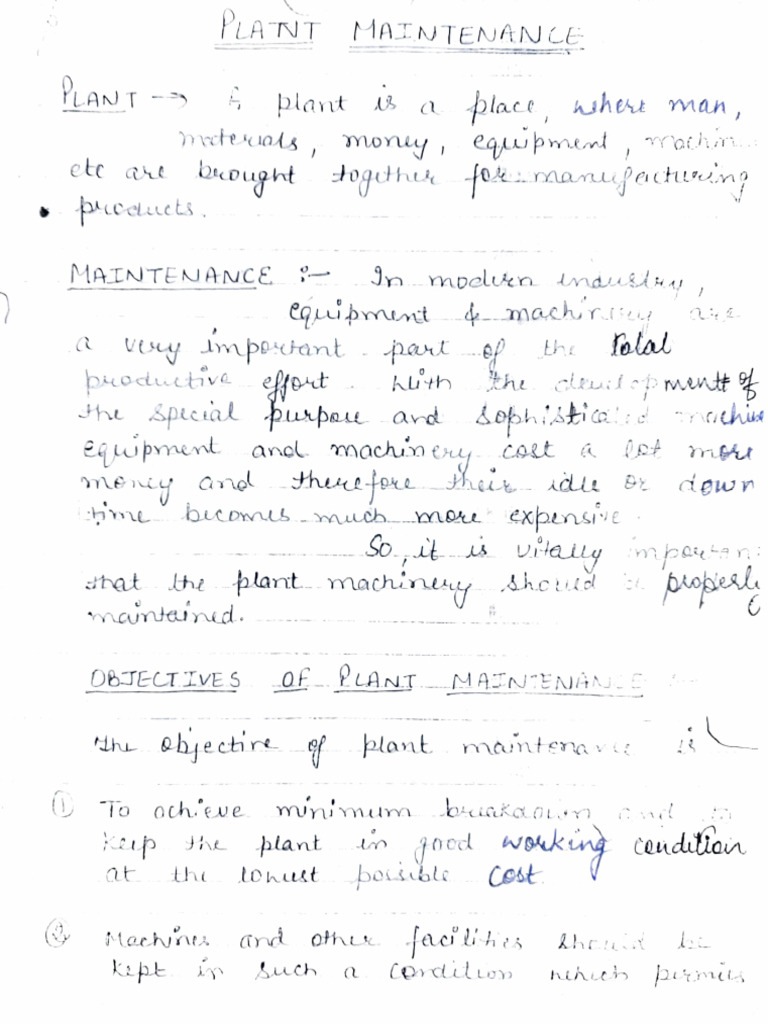 PLANT MAINTENANCE
PLANT → A plant is a place, where man,
materials, money, equipment, machin
etc are brought together for manufacturing
products.
MAINTENANCE :- In modern industry,
equipment & machinery are
a very important part of the total
productive effort. With the development of
the special purpose and sophisticated machine
equipment and machinery cost a lot more
money and therefore their idle or down
time becomes much more expensive.
So, it is vitally important
that the plant machinery should be properly
maintained.
OBJECTIVES OF PLANT MAINTENANCE
The objective of plant maintenance is
① To achieve minimum breakdown and to
keep the plant in good working condition
at the lowest possible cost
② Machines and other facilities should be
kept in such a condition which permits